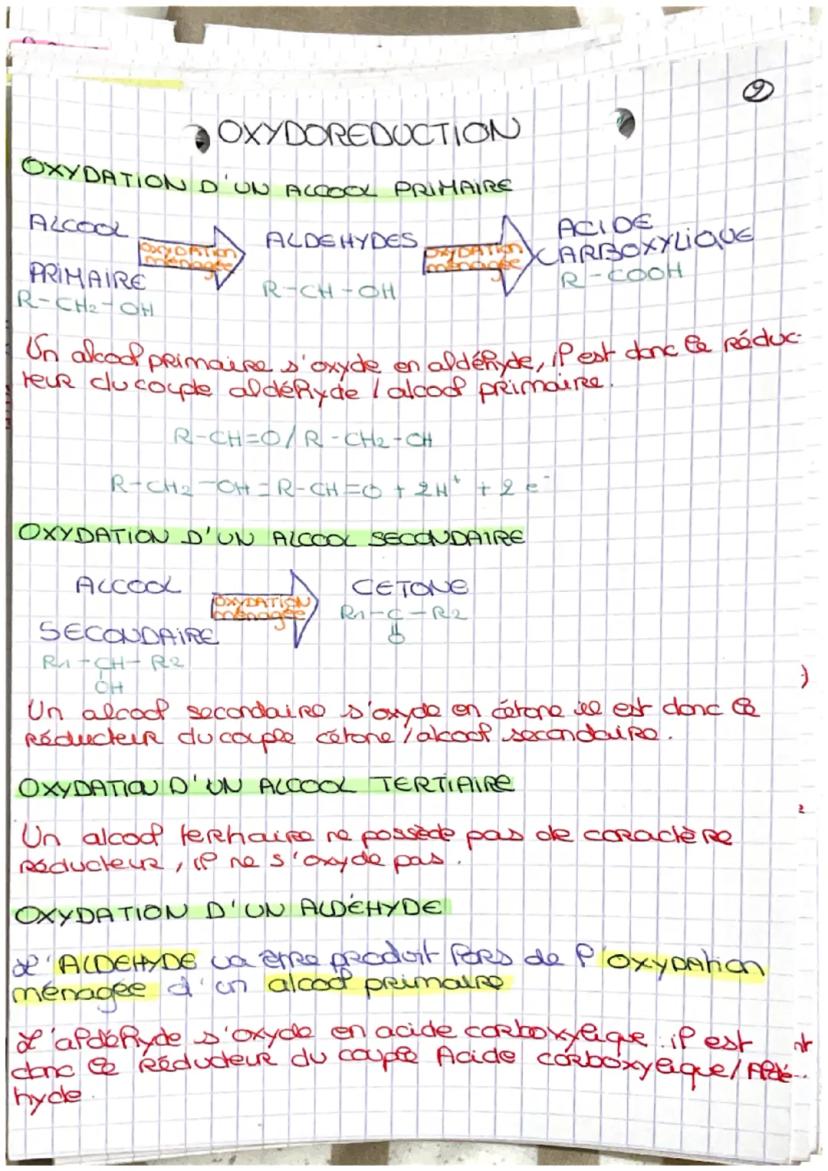 9
OXYDOREDUCTION
OXYDATION D'UN ALCOOL PRIMAIRE
ALCOOL PRIMAIRE
R-CH2-OH
OXYDATION ménagée
ALDEHYDES
R-CH-OH
OXYDATION ménagée
ACIDE CARBOXYLIQUE
R-COOH
Un alcool primaire s'oxyde en aldéhyde, il est donc le réduc-
teur du couple aldéhyde / alcool primaire.
R-CH=O/R-CH2-OH
R-CH2-OH=R-CH=O + 2H⁺ + 2e⁻
OXYDATION D'UN ALCOOL SECONDAIRE
ALCOOL SECONDAIRE
R1-CH-R2
OH
OXYDATION ménagée
CETONE
R1-C-R2
O
Un alcool secondaire s'oxyde en cétone il est donc le
réducteur du couple cétone / alcool secondaire.
OXYDATION D'UN ALCOOL TERTIAIRE
Un alcool tertiaire ne possède pas de caractère
réducteur, il ne s'oxyde pas.
OXYDATION D'UN ALDÉHYDE
L'ALDEHYDE va être produit lors de l'OXYDATION
ménagée d'un alcool primaire
L'aldéhyde s'oxyde en acide carboxylique il est
donc le réducteur du couple Acide carboxylique / Aldé-
hyde.